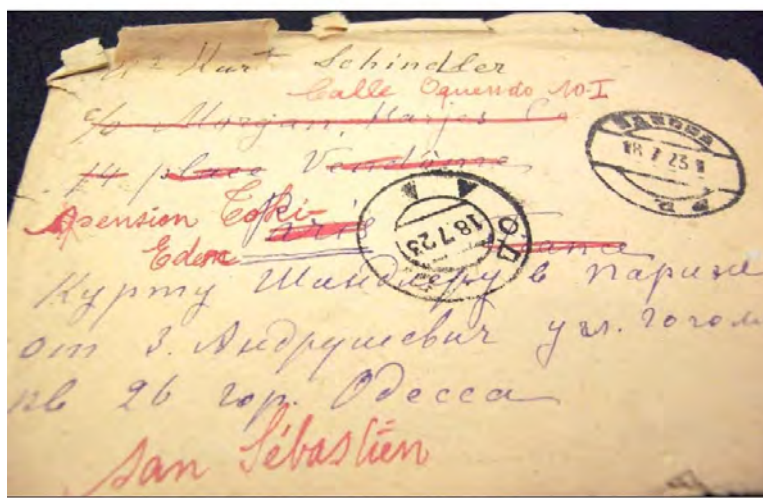 Mr Kurt Schindler
Calle Oquendo 10-I
c/o Morgan, Harjes Co
14 place Vendôme
pension Toki-
Eden Paris
Курту Шиндлеру в Париже
от З. Андрушевич ул. Гогол
кв 26 гор. Одесса
San Sébastien
18 7 23
18.7.23